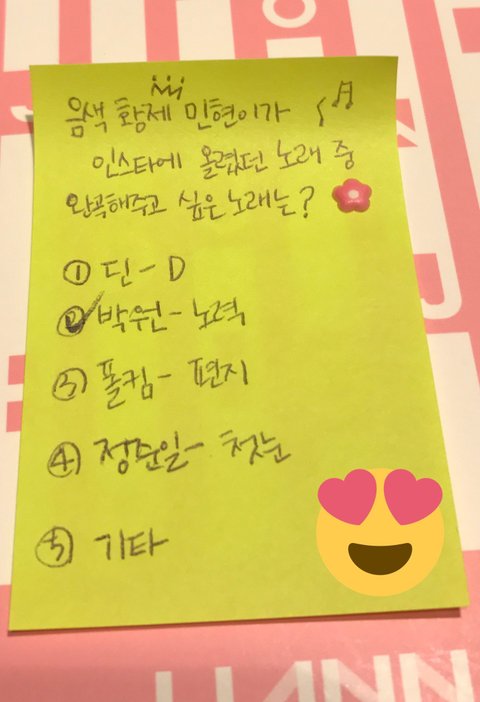 음색 황제 민현이가
인스타에 올렸던 노래 중
완곡해주고 싶은 노래는?
① 딘 - D
② 박원 - 노력
③ 폴킴 - 편지
④ 정준일 - 첫눈
⑤ 기타